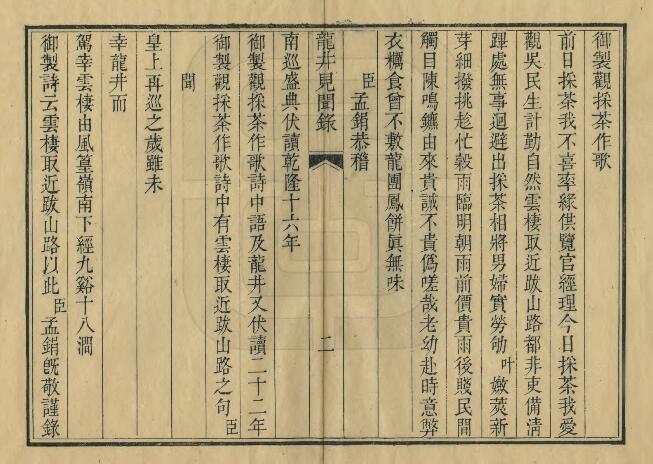 御製觀採茶作歌
前日採茶我不喜率緣供覽官經理今日採茶我愛
觀吳民生計勤自然雲棲取近跋山路都非吏備清
蹕處無事迴避出採茶相將男婦實勞劬叶嫩莢新
芽細撥挑趁忙穀雨臨明朝雨前價貴雨後賤民艱
觸目陳鳴鑣由來貴誠不貴僞嗟哉老幼赴時意弊
衣糲食曾不敷龍團鳳餅眞無味
臣孟鋗恭稽
龍井見聞錄
二
南巡盛典伏讀乾隆十六年
御製觀採茶作歌詩中語及龍井又伏讀二十二年
御製觀採茶作歌詩中有雲棲取近跋山路之句臣
聞
皇上再巡之歲雖未
幸龍井而
駕幸雲棲由風篁嶺南下經九谿十八澗
御製詩云雲棲取近跋山路以此臣孟鋗旣敬謹錄